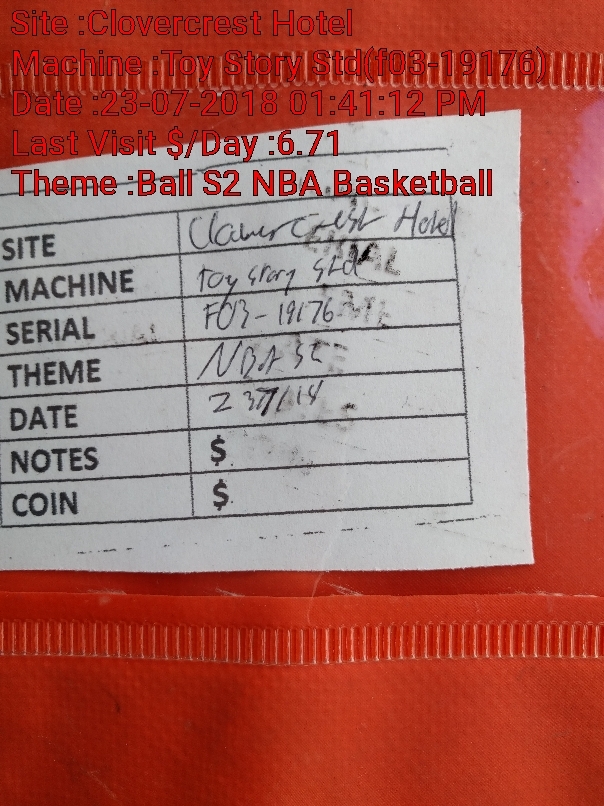 Site :Clovercrest Hotel
Machine :Toy Story Std(f03-19176)
Date :23-07-2018 01:41:12 PM
Last Visit $/Day :6.71
Theme :Ball S2 NBA Basketball
SITE Clovercrest Hotel
MACHINE Toy Story Std
SERIAL F03-19176
THEME NBA S2
DATE 237/18
NOTES $
COIN $